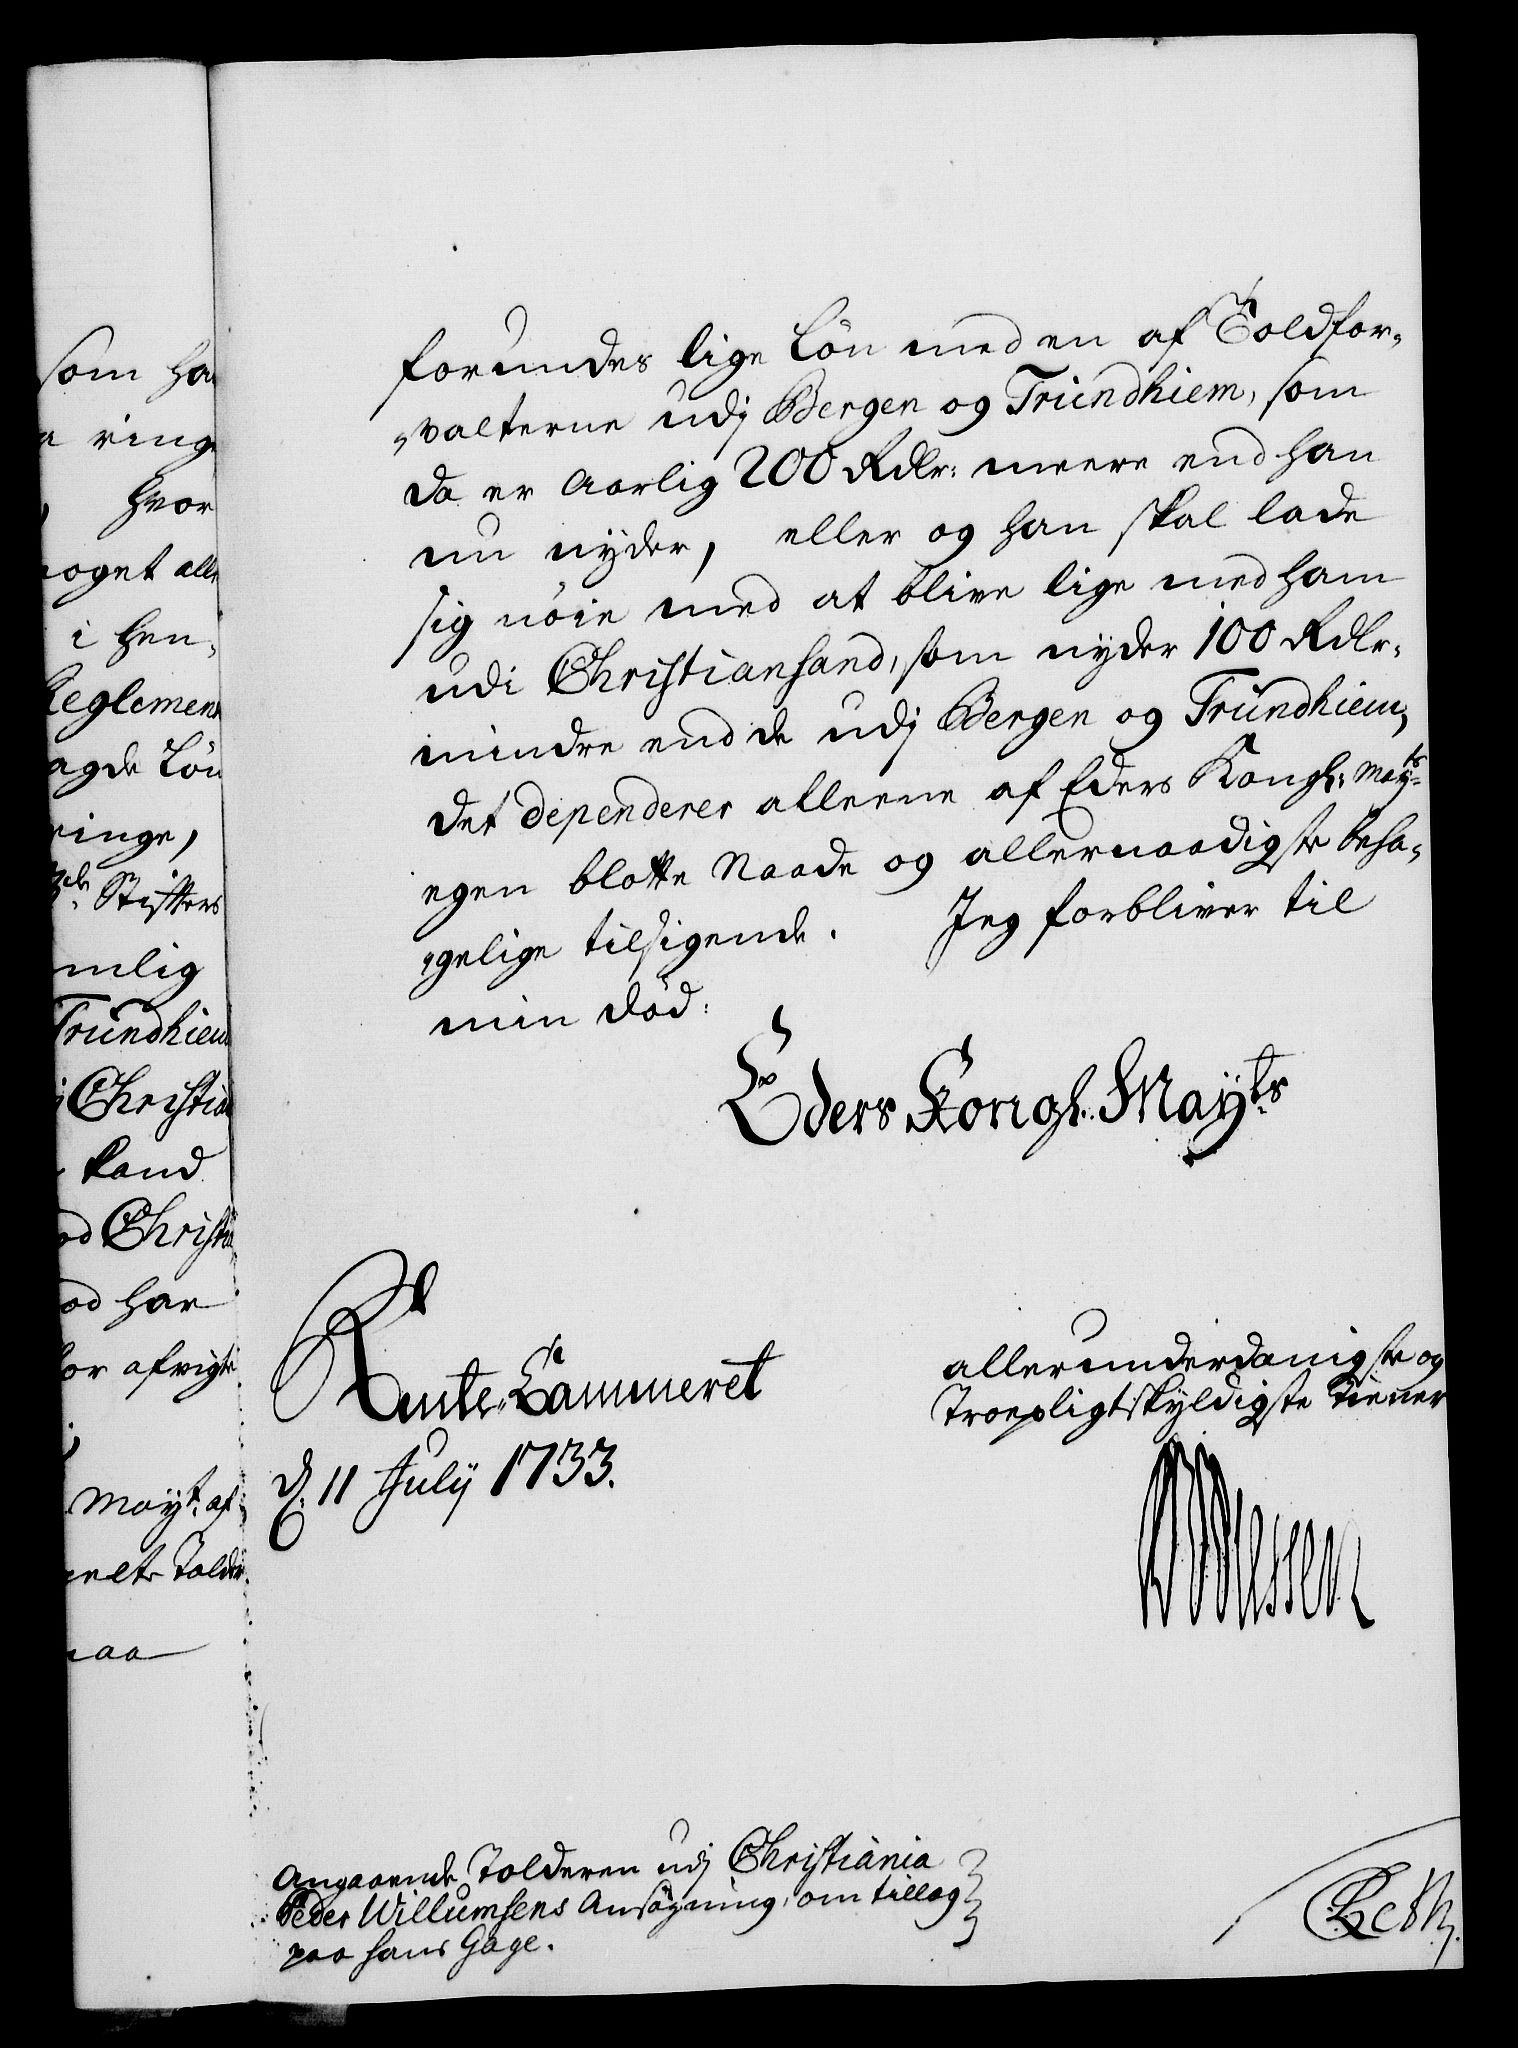 som ha
ringe
hvor
noget alle
i hen-
Reglement
agde Lön
ringe,
Stiffters
mlig
Trundhiem
Christia
kand
od Christi
od har
for afvigt
Mayt. af
Tolder
paa
forundes lige Lön med en af Toldfor-
valterne udj Bergen og Trundhiem, som
da er aarlig 200 Rdlr: meere end han
nu nyder, eller og han skal lade
sig nöie med at blive lige med ham
udi Christiansand, som nyder 100 Rdlr.
mindre end de udj Bergen og Trundhiem,
det dependerer alleene af Eders Kongl: May:ts
egen blotte Naade og allernaadigste beha-
gelige tilsigende. Jeg forbliver til
min död:
Eders Kongl. Mayts
Rente-Cammeret
d. 11 July 1733.
allerunderdanigste og
Troepligtskyldigste tiener
Angaaende Tolderen udj Christiania
Peder Willumsens Ansøgning, om tillæg
paa hans Gage.